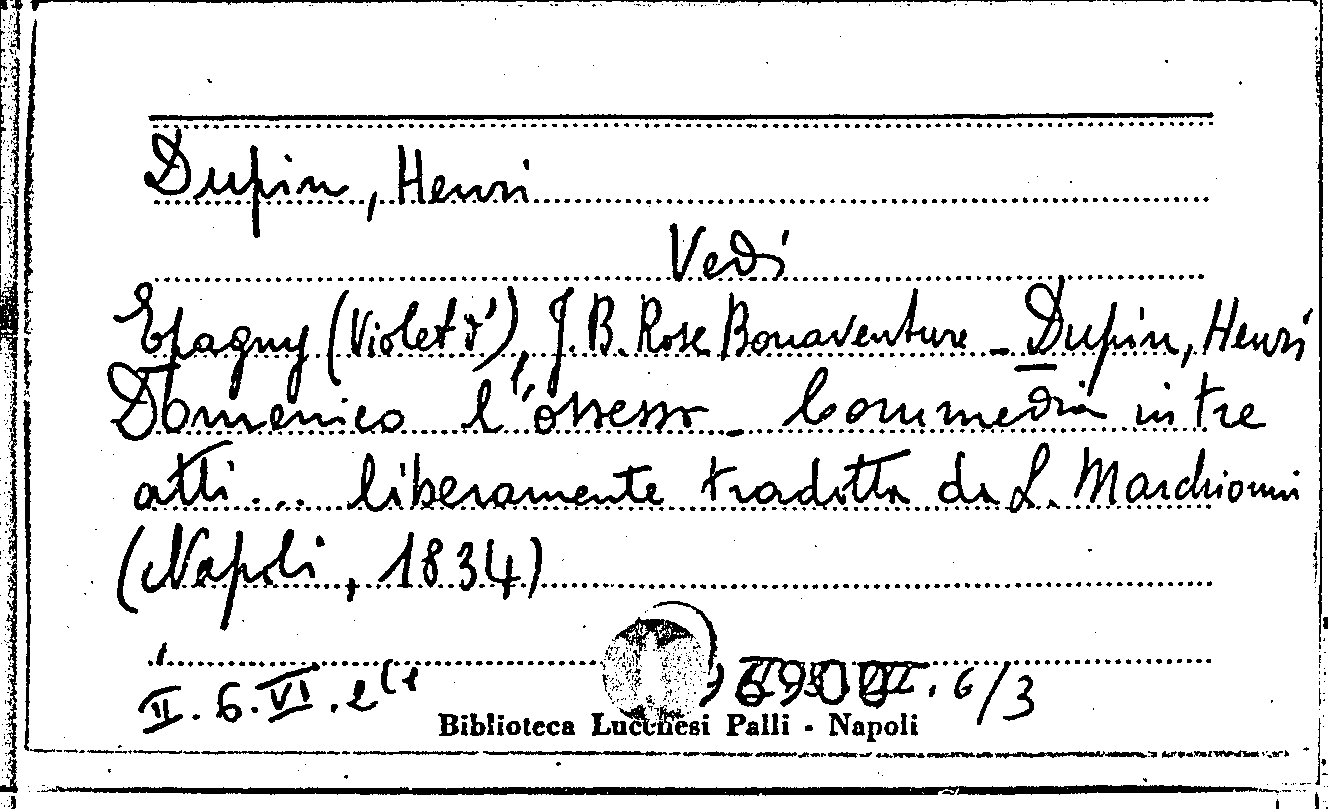 Dupin, Henri
Vedi
Epagny (Violet d'), J. B. Rose Bonaventure - Dupin, Henri
Domenico l'ossesso - Commedia in tre
atti ... liberamente tradotta da L. Marchionni
(Napoli, 1834)
II. 6. VI. 2 6/3
Biblioteca Lucchesi Palli - Napoli